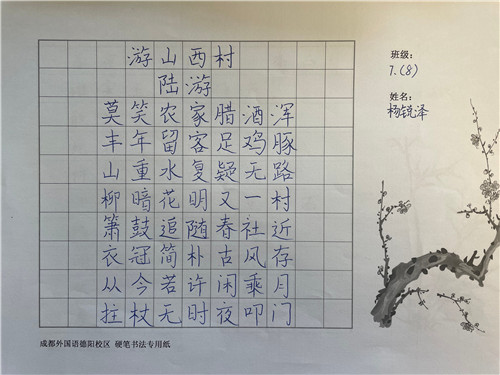 游山西村
陆游
莫笑农家腊酒浑
丰年留客足鸡豚
山重水复疑无路
柳暗花明又一村
箫鼓追随春社近
衣冠简朴古风存
从今若许闲乘月
拄杖无时夜叩门
班级:
7.(8)
姓名:
杨锐泽
成都外国语德阳校区 硬笔书法专用纸